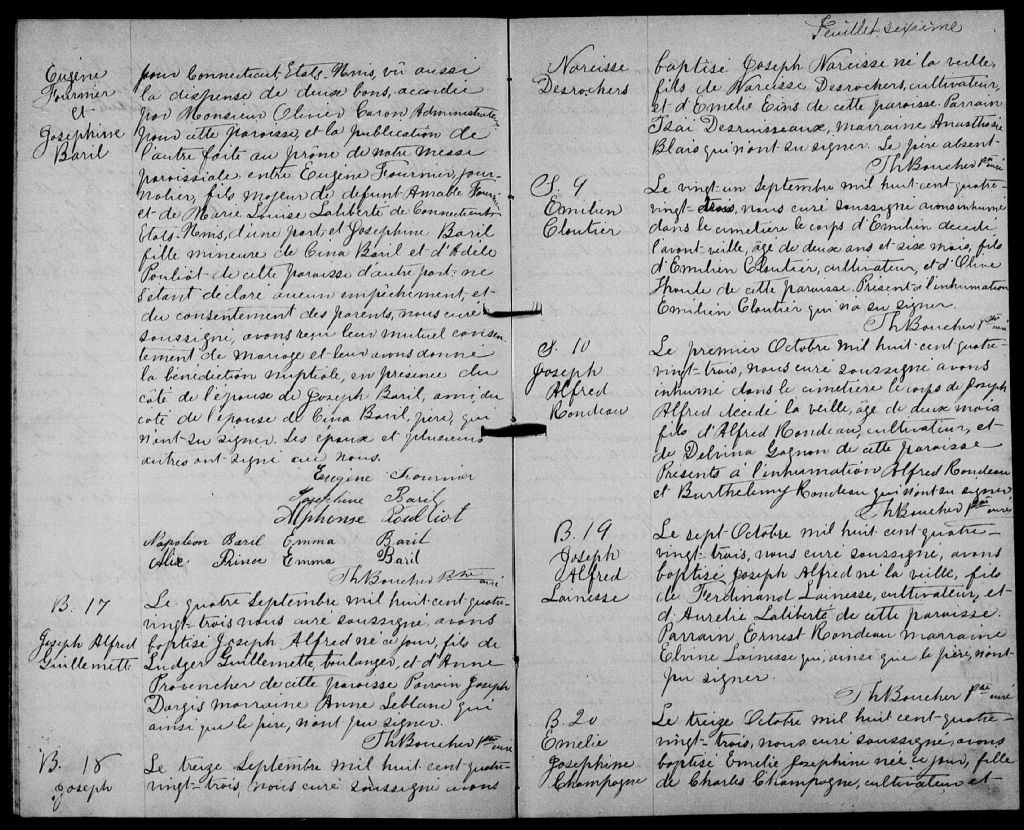 Eugène
Fournier
et
Josephine
Baril
pour Connecticut Etats-Unis, vû aussi
la dispense de deux bans, accordée
par Monsieur Olivier Caron Administrateur
pour cette paroisse, et la publication de
l'autre faite au prône de notre messe
paroissiale entre Eugène Fournier, jour-
nalier, fils majeur de defunt Amable Fournier
et de Marie Louise Laliberté de Connecticut
Etats-Unis, d'une part, et Josephine Baril
fille mineure de Cina Baril et d'Adèle
Pouliot de cette paroisse d'autre part: ne
s'étant déclaré aucun empêchement, et
du consentement des parents, nous curé
soussigné, avons reçu leur mutuel consen-
tement de mariage et leur avons donné
la bénédiction nuptiale, en présence du
côté de l'époux de Joseph Baril, ami, du
côté de l'épouse de Cina Baril, père, qui
n'ont su signer. Les epoux et plusieurs
autres ont signé avec nous.
Eugène Fournier
Josephine Baril
Alphonse Poulliot
Napoleon Baril Emma Baril
Alix Prince Emma Baril
Th Boucher Ptre curé
B. 17
Joseph Alfred
Guillemette
Le quatre Septembre mil huit-cent-quatre-
vingt-trois nous curé soussigné avons
baptisé Joseph Alfred né ce jour, fils de
Ludger Guillemette, boulanger, et d'Anne
Provencher de cette paroisse Parrain Joseph
Dargis marraine Anne Leblanc qui
ainsi que le père, n'ont pu signer.
Th Boucher Ptre curé
B. 18
Joseph
Le treize Septembre mil huit-cent-quatre-
vingt-trois, nous curé soussigné avons
Feuillet sixième
Narcisse
Desrochers
baptisé Joseph Narcisse né la veille,
fils de Narcisse Desrochers, cultivateur,
et d'Emelie Eins de cette paroisse. Parrain
Isaï Desruisseaux, marraine Anasthasie
Blais qui n'ont su signer. Le père absent
Th Boucher Ptre curé
S. 9
Emilien
Cloutier
Le vingt-un Septembre mil huit-cent-quatre-
vingt-trois, nous curé soussigné avons inhumé
dans le cimetière le corps d'Emilien décédé
l'avant-veille, âge de deux ans et six mois, fils
d'Emilien Cloutier, cultivateur, et d'Olive
Houle de cette paroisse. Présent à l'inhumation
Emilien Cloutier qui n'a su signer.
Th Boucher Ptre curé
S. 10
Joseph
Alfred
Rondeau
Le premier Octobre mil huit cent quatre-
vingt-trois, nous curé soussigné avons
inhumé dans le cimetière le corps de Joseph
Alfred décédé la veille, âge de deux mois,
fils d'Alfred Rondeau, cultivateur, et
de Delvina Gagnon de cette paroisse
Présents à l'inhumation Alfred Rondeau
et Barthelemy Rondeau qui n'ont su signer
Th Boucher Ptre curé
B. 19
Joseph
Alfred
Lainesse
Le sept Octobre mil huit cent quatre-
vingt-trois, nous curé soussigné, avons
baptisé Joseph Alfred né la veille, fils
de Ferdinand Lainesse, cultivateur, et
d'Aurelie Laliberté de cette paroisse.
Parrain Ernest Rondeau marraine
Elvine Lainesse qui, ainsi que le père, n'ont
pu signer.
Th Boucher Ptre curé
B. 20
Emelie
Josephine
Champagne
Le treize Octobre mil huit cent-quatre-
vingt-trois, nous curé soussigné, avons
baptisé Emelie Josephine née ce jour, fille
de Charles Champagne, cultivateur et